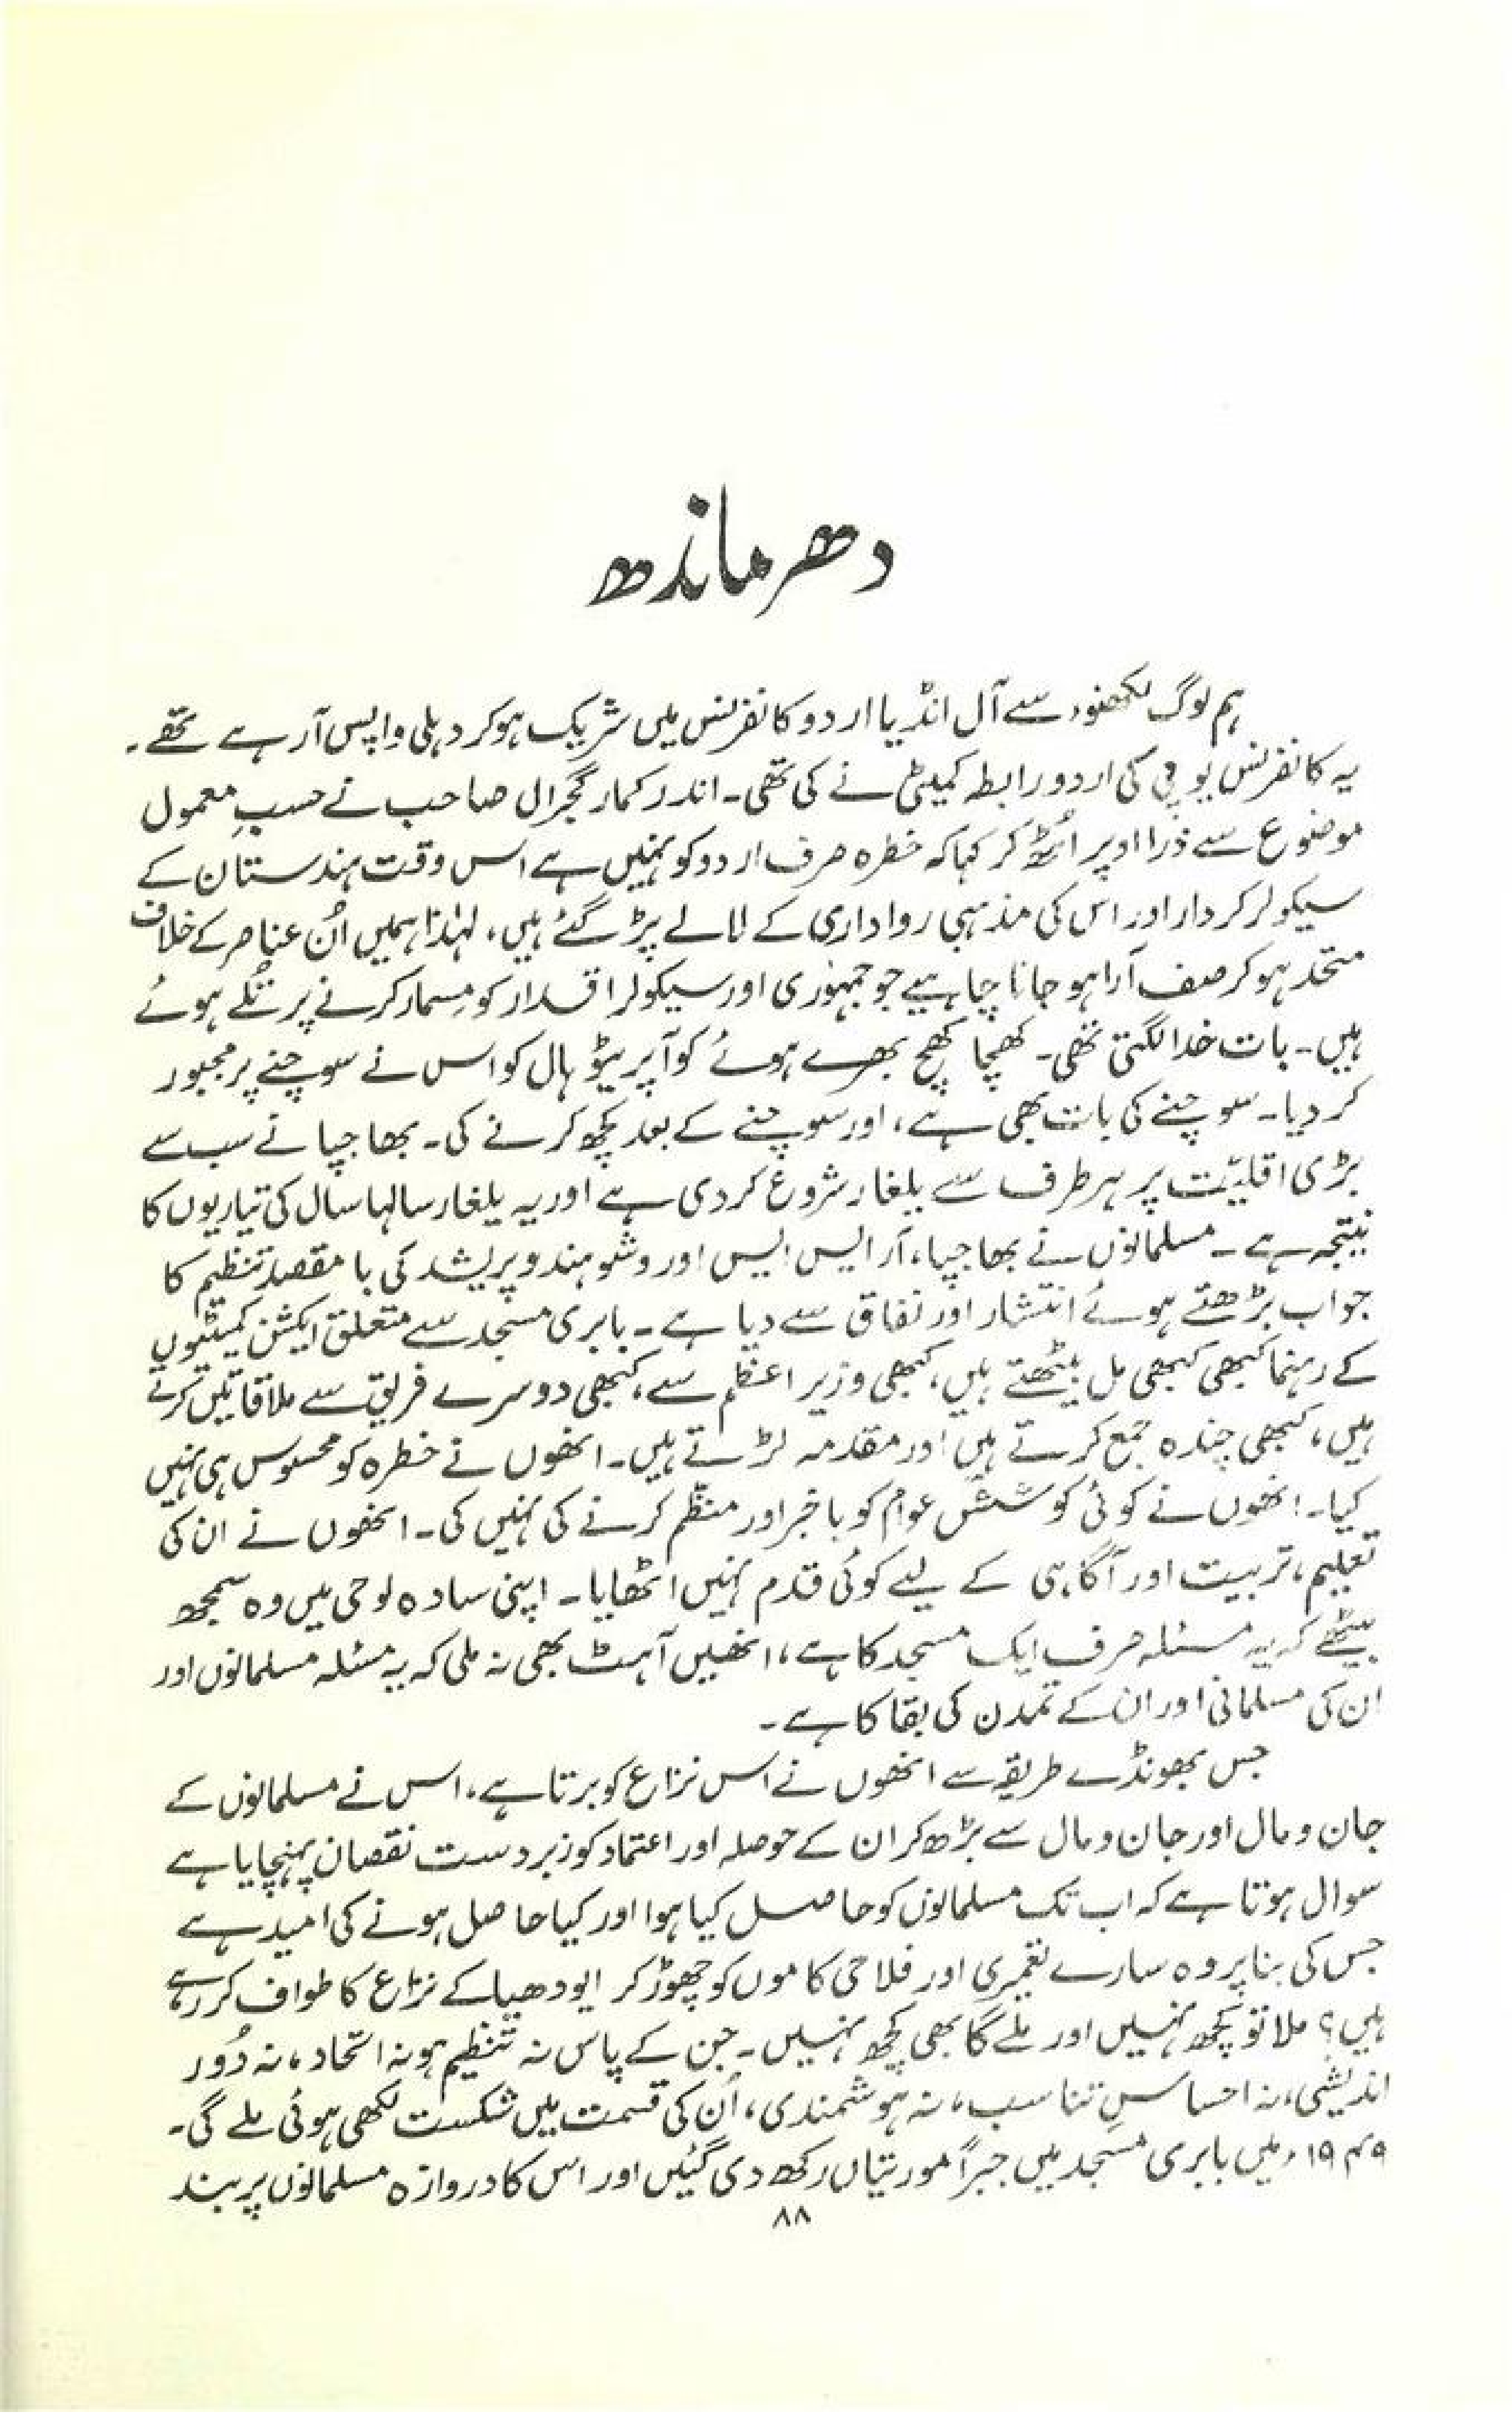 دھرماندھ
ہم لوگ لکھنؤ سے آل انڈیا اردو کانفرنس میں شریک ہوکر دہلی واپس آرہے تھے۔
یہ کانفرنس یو پی کی اردو رابطہ کمیٹی نے کی تھی۔ اندر کمار گجرال صاحب نے حسبِ معمول
موضوع سے ذرا اوپر اُٹھ کر کہا کہ خطرہ صرف اردو کو نہیں ہے اس وقت ہندستان کے
سیکولر کردار اور اس کی مذہبی رواداری کے لالے پڑ گئے ہیں، لہٰذا ہمیں اُن عناصر کے خلاف
متحد ہوکر صف آرا ہو جانا چاہیے جو جمہوری اور سیکولر اقدار کو مِسمار کرنے پر تُلے ہوئے
ہیں۔ بات خدا لگتی تھی۔ کھچا کھچ بھرے ہوئے کوآپریٹو ہال کو اس نے سوچنے پر مجبور
کر دیا۔ سوچنے کی بات بھی ہے، اور سوچنے کے بعد کچھ کرنے کی۔ بھاجپا نے سب سے
بڑی اقلیّت پر ہر طرف سے یلغار شروع کردی ہے اور یہ یلغار سالہا سال کی تیاریوں کا
نتیجہ ہے۔ مسلمانوں نے بھاجپا، آر ایس ایس اور وشو ہندو پریشد کی با مقصد تنظیم کا
جواب بڑھتے ہوئے انتشار اور نفاق سے دیا ہے۔ بابری مسجد سے متعلق ایکشن کمیٹیوں
کے رہنما کبھی کبھی مل بیٹھتے ہیں، کبھی وزیر اعظم سے، کبھی دوسرے فریق سے ملاقاتیں کرتے
ہیں، کبھی چندہ جمع کرتے ہیں اور مقدمہ لڑتے ہیں۔ انھوں نے خطرہ کو محسوس ہی نہیں
کیا۔ انھوں نے کوئی کوشش عوام کو باخبر اور منظّم کرنے کی نہیں کی۔ انھوں نے ان کی
تعلیم، تربیت اور آگاہی کے لیے کوئی قدم نہیں اٹھایا۔ اپنی سادہ لوحی میں وہ سمجھ
بیٹھے کہ یہ مسئلہ صرف ایک مسجد کا ہے، انھیں آہٹ بھی نہ ملی کہ یہ مسئلہ مسلمانوں اور
ان کی مسلمانی اور ان کے تمدن کی بقا کا ہے۔
جس بھونڈے طریقے سے انھوں نے اس نزاع کو برتا ہے، اس نے مسلمانوں کے
جان و مال اور جان و مال سے بڑھ کر ان کے حوصلہ اور اعتماد کو زبردست نقصان پہنچایا ہے
سوال ہوتا ہے کہ اب تک مسلمانوں کو حاصل کیا ہوا اور کیا حاصل ہونے کی امید ہے
جس کی بنا پر وہ سارے تعمیری اور فلاحی کاموں کو چھوڑ کر ایودھیا کے نزاع کا طواف کر رہے
ہیں؟ ملا تو کچھ نہیں اور ملے گا بھی کچھ نہیں۔ جن کے پاس نہ تنظیم ہو نہ اتّحاد، نہ دُور
اندیشی، نہ احساسِ تناسب، نہ ہوشمندی، اُن کی قسمت میں شکست لکھی ہوئی ملے گی۔
۱۹۴۹ء میں بابری مسجد میں جبراً مورتیاں رکھ دی گئیں اور اس کا دروازہ مسلمانوں پر بند
۸۸